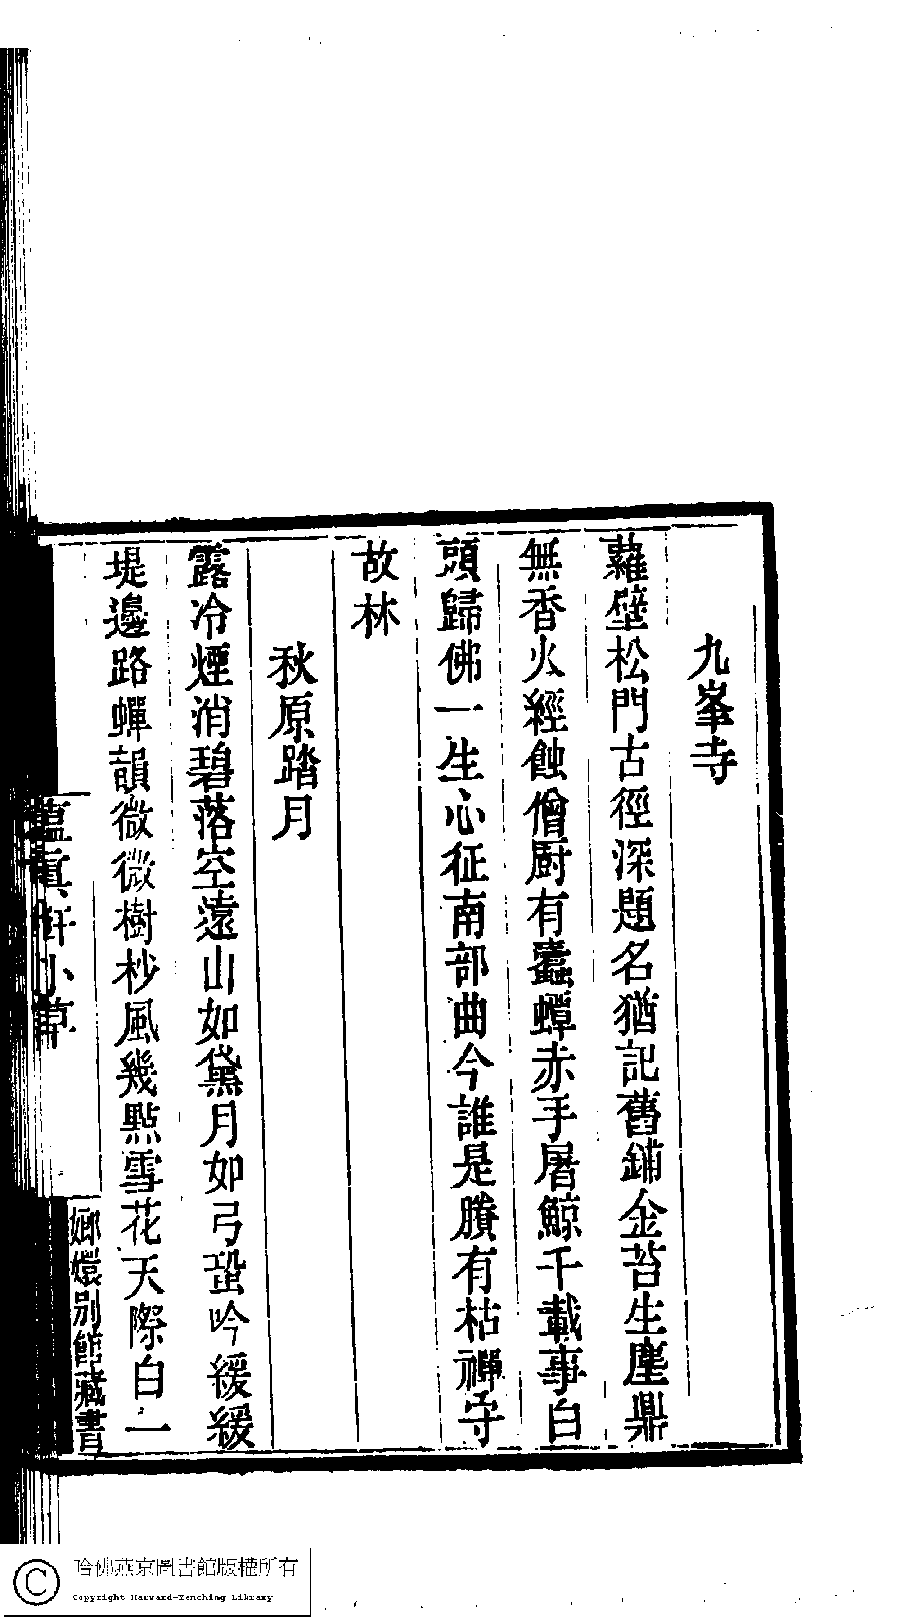 九峯寺
蘿壁松門古徑深題名猶記舊鋪金苔生塵鼎
無香火經蝕僧厨有蠹蟫赤手屠鯨千載事白
頭歸佛一生心征南部曲今誰是賸有枯禪守
故林
秋原踏月
露冷煙消碧落空遠山如黛月如弓蛩吟緩緩
堤邊路蟬韻微微樹杪風幾點雪花天際白一
蘊真軒小草
嫏嬛別館藏書
哈佛燕京圖書館版權所有
Copyright Harvard-Yenching Library